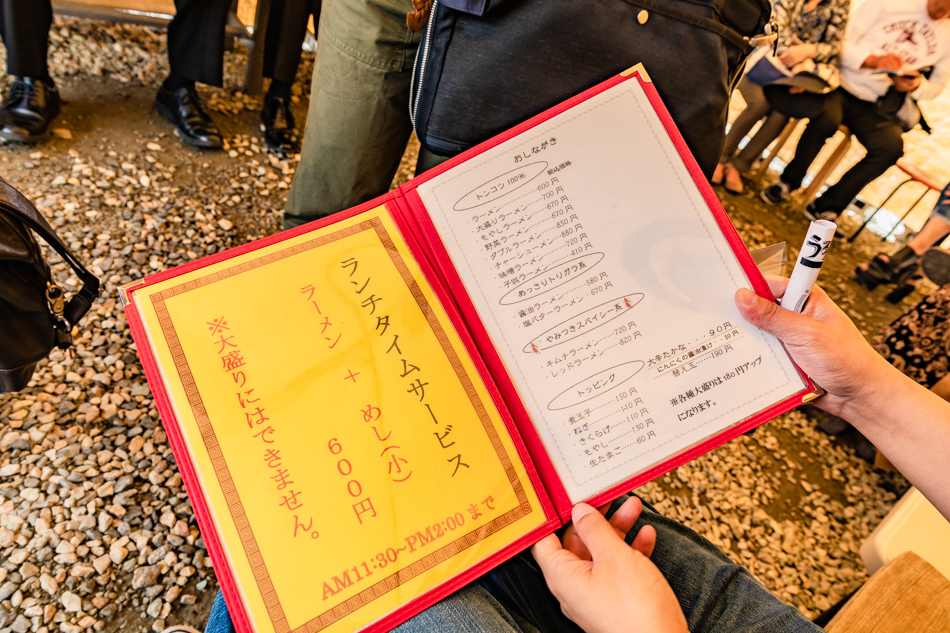 ランチタイムサービス
ラーメン + めし(小)
600円
※大盛りにはできません。
AM11:30~PM2:00 まで
おしながき
トンコツ100% 税込価格
・ラーメン…………600円
・大盛りラーメン……700円
・もやしラーメン……670円
・野菜ラーメン………670円
・ダブルラーメン……850円
・チャーシューメン…880円
・味噌ラーメン………720円
・子供ラーメン………410円
あっさりトリガラ系
・醤油ラーメン………580円
・塩バターラーメン…670円
やみつきスパイシー系
・キムチラーメン……720円
・レッドラーメン……820円
トッピング
・煮玉子…………150円
・ねぎ……………110円
・きくらげ………110円
・もやし…………130円
・生たまご………60円
大辛たかな…90円
にんにくの醤油漬け…50円
替え玉…………190円
※各種大盛りは180円アップ
になります。